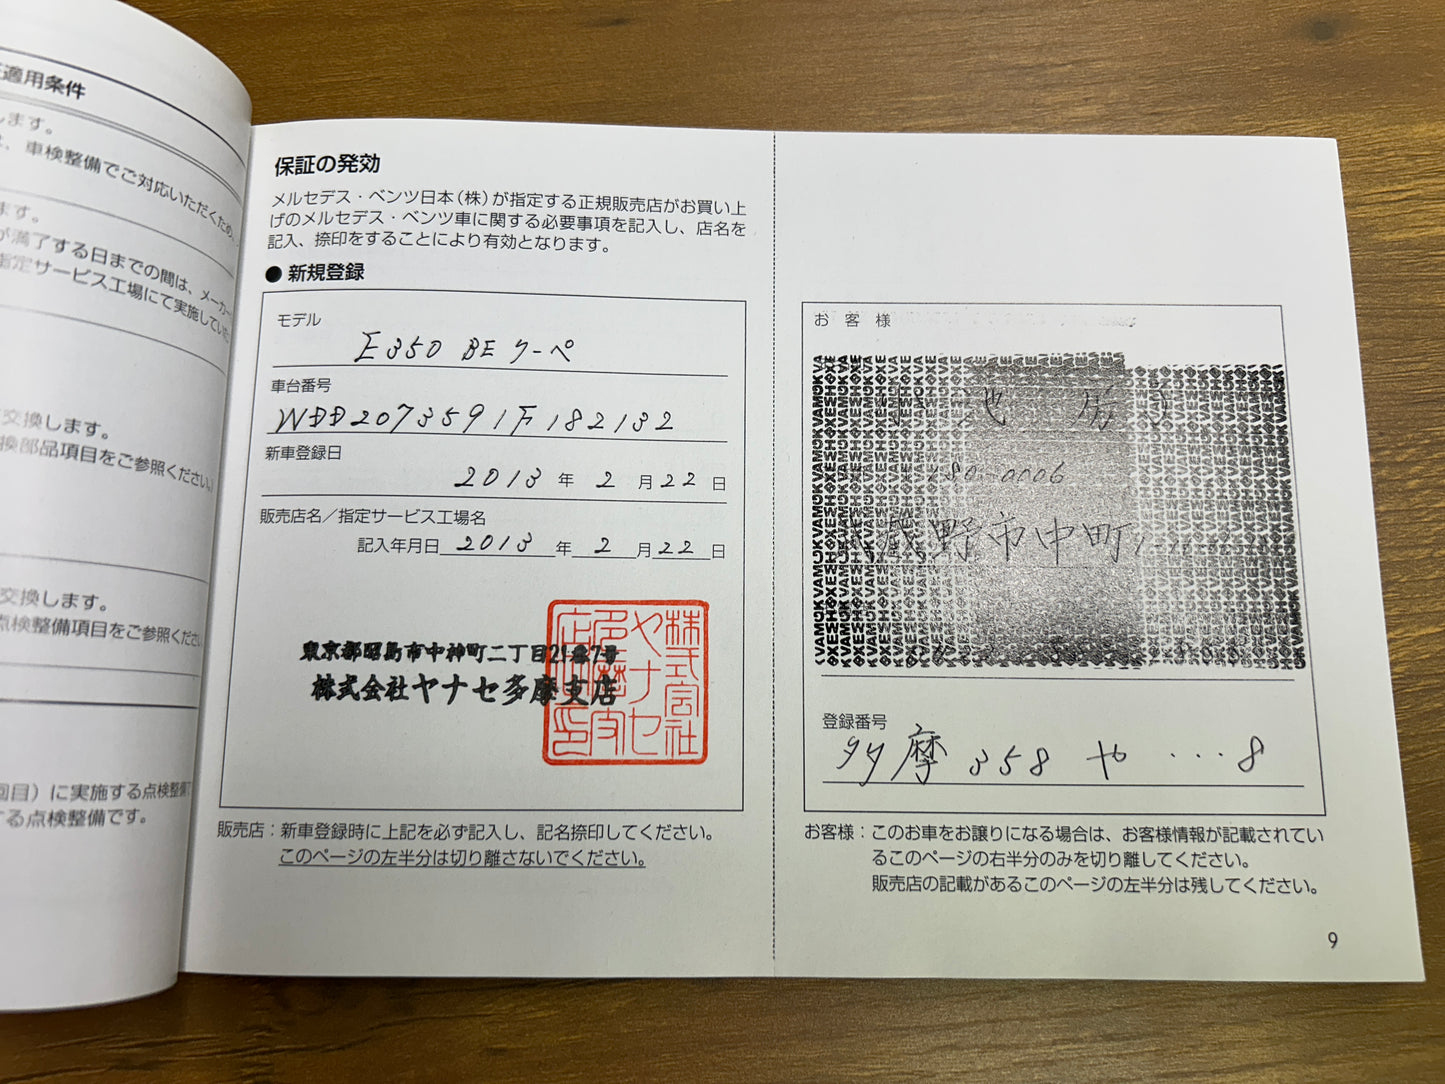 適用条件
します。
、車検整備でご対応いただくため、
ます。
が満了する日までの間は、メーカー
指定サービス工場にて実施してい
交換します。
換部品項目をご参照ください。
交換します。
点検整備項目をご参照くださ
回目）に実施する点検整備で
する点検整備です。
保証の発効
メルセデス・ベンツ日本（株）が指定する正規販売店がお買い上
げのメルセデス・ベンツ車に関する必要事項を記入し、店名を
記入、捺印をすることにより有効となります。
● 新規登録
モデル
E350 BE クーペ
車台番号
WDD2073591F182132
新車登録日
2013 年 2 月 22 日
販売店名／指定サービス工場名
記入年月日 2013 年 2 月 22 日
東京都昭島市中神町二丁目21番7号
株式会社ヤナセ多摩支店
株式会社
ヤナセ
販売店：新車登録時に上記を必ず記入し、記名捺印してください。
このページの左半分は切り離さないでください。
お客様
登録番号
多摩 358 や ・・・8
お客様：このお車をお譲りになる場合は、お客様情報が記載されてい
るこのページの右半分のみを切り離してください。
販売店の記載があるこのページの左半分は残してください。
9